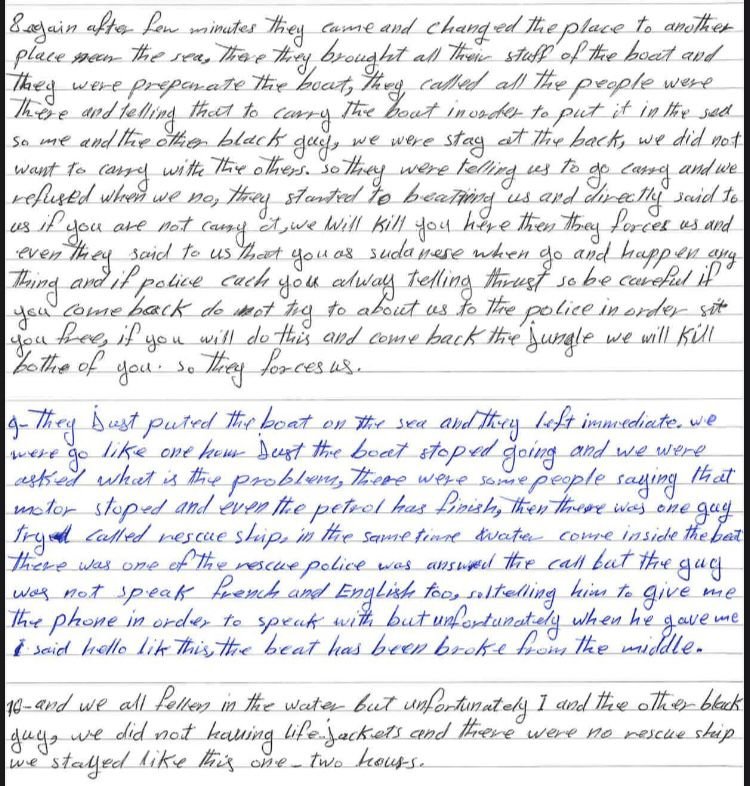 8 again after few minutes they came and changed the place to another
place near the sea, there they brought all their stuff of the boat and
they were preparate the boat, they called all the people were
there and telling that to carry the boat inorder to put it in the sea
so me and the other black guy, we were stay at the back, we did not
want to carry with the others. so they were telling us to go carry and we
refused when we no, they started to beating us and directly said to
us if you are not carry it, we will kill you here then they forces us and
even they said to us that you as sudanese when go and happen any
thing and if police cach you alway telling thrust so be careful if
you come back do not try to about us to the police in order
you free, if you will do this and come back the jungle we will kill
bothe of you. so they forces us.
9- They Just puted the boat on the sea and they left immediate. we
were go like one hour Just the boat stoped going and we were
asked what is the problem, there were some people saying that
motor stoped and even the petrol has finish, then there was one guy
tryed called rescue ship, in the same time water come inside the boat
there was one of the rescue police was answed the call but the guy
was not speak french and English too, so telling him to give me
the phone in order to speak with but unfortunately when he gave me
I said hello lik this, the boat has been broke from the middle.
10- and we all fellen in the water but unfortunately I and the other black
guy, we did not having life-jackets and there were no rescue ship
we stayed like this one - two hours.